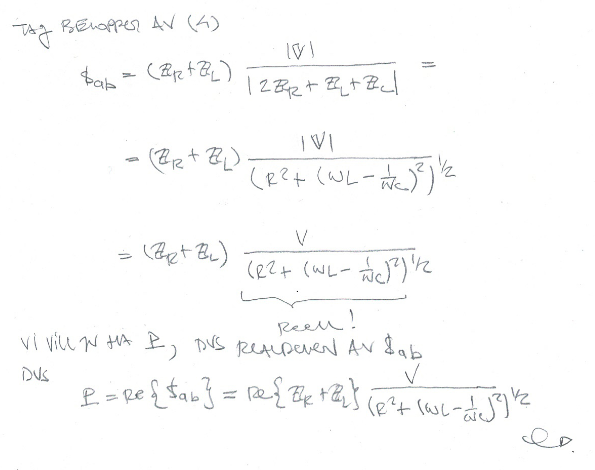 TAG BELOPPEN AV (4)
$ab = (ZR+ZL) |V| / |2ZR + ZL + ZC| =
= (ZR + ZL) |V| / (R² + (ωL - 1/ωC)²)^1/2
= (ZR+ZL) V / (R² + (ωL - 1/ωC)²)^1/2
REELL!
VI VILL JU HA P, DVS REALDELEN AV $ab
DVS
P = Re{$ab} = Re{ZR + ZL} V / (R² + (ωL - 1/ωC)²)^1/2